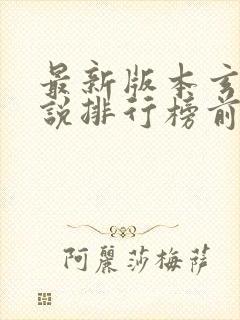 最新版本玄
说排行榜前
阿麗莎梅薩